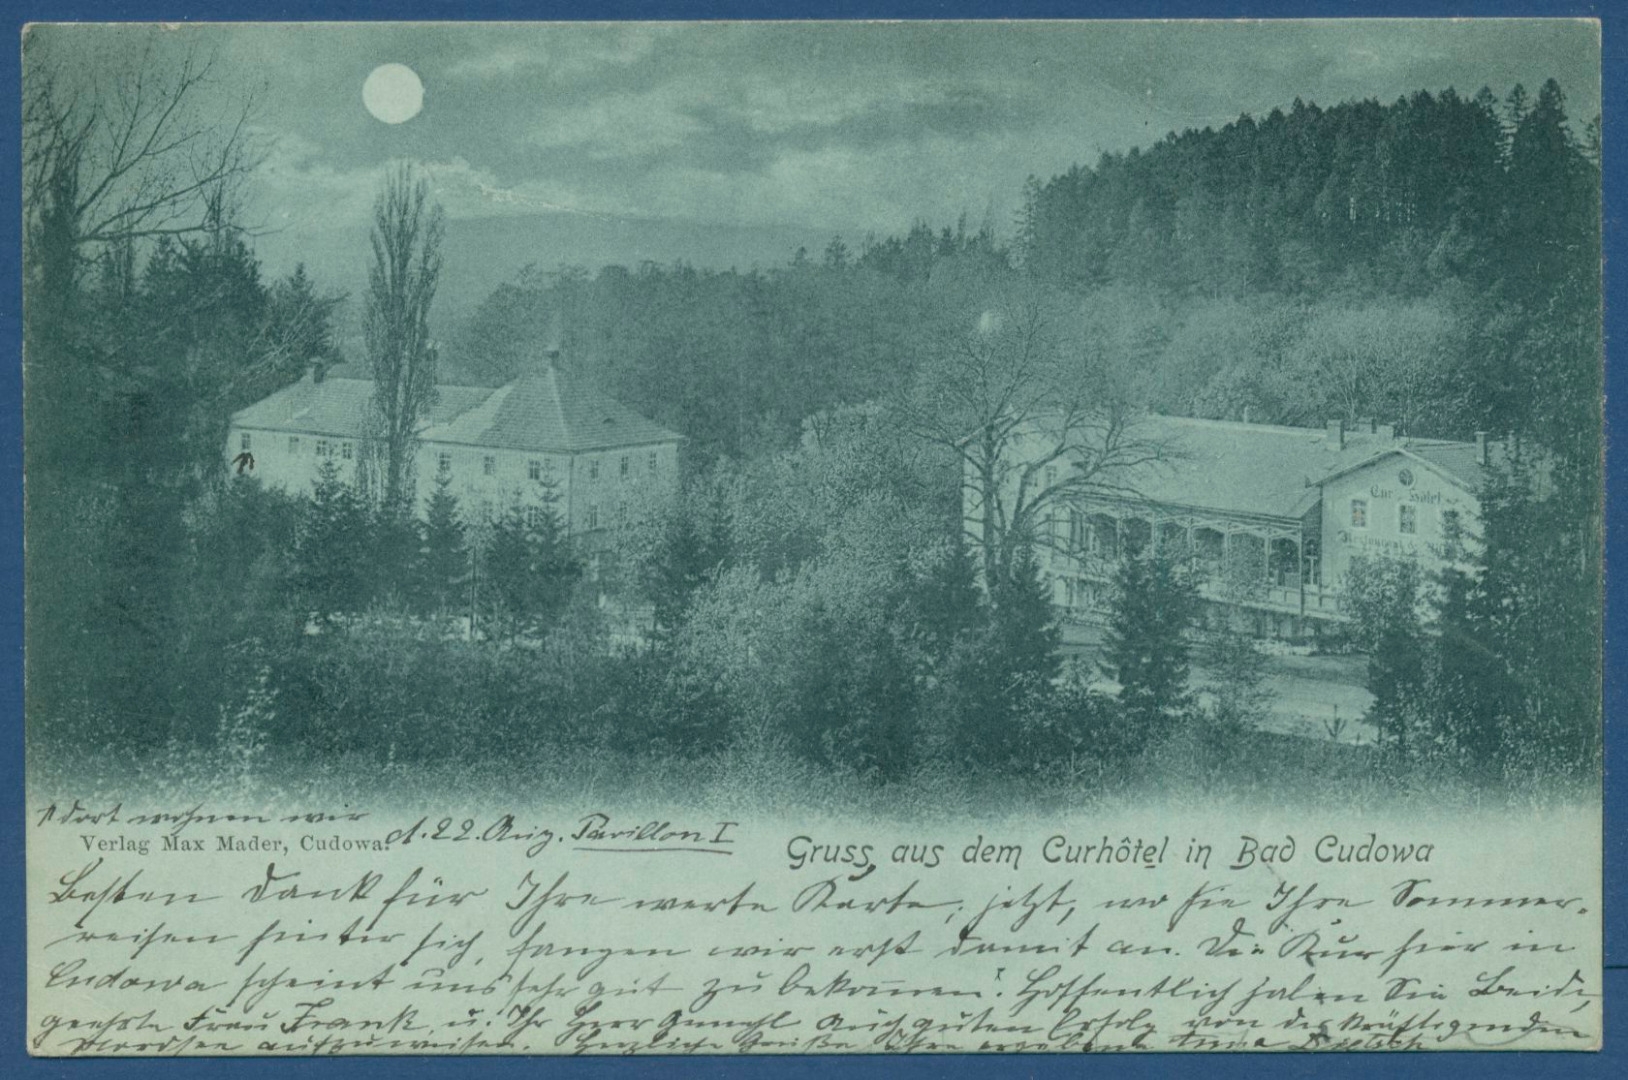 Cur Hôtel
↑ dort wohnen wir
Verlag Max Mader, Cudowa.
d. 22. Aug. Pavillon I
Gruss aus dem Curhôtel in Bad Cudowa
Besten Dank für Ihre werte Karte; jetzt, wo Sie Ihre Sommer-
reisen hinter sich, fangen wir erst damit an. Die Kur hier in
Cudowa scheint uns sehr gut zu bekommen. Hoffentlich haben Sie Beide,
geehrte Frau Frank, u. Ihr Herr Gemahl auch guten Erfolg von der kräftigenden
Nordsee aufzuweisen. Herzliche Grüße Ihre ergebene Anna